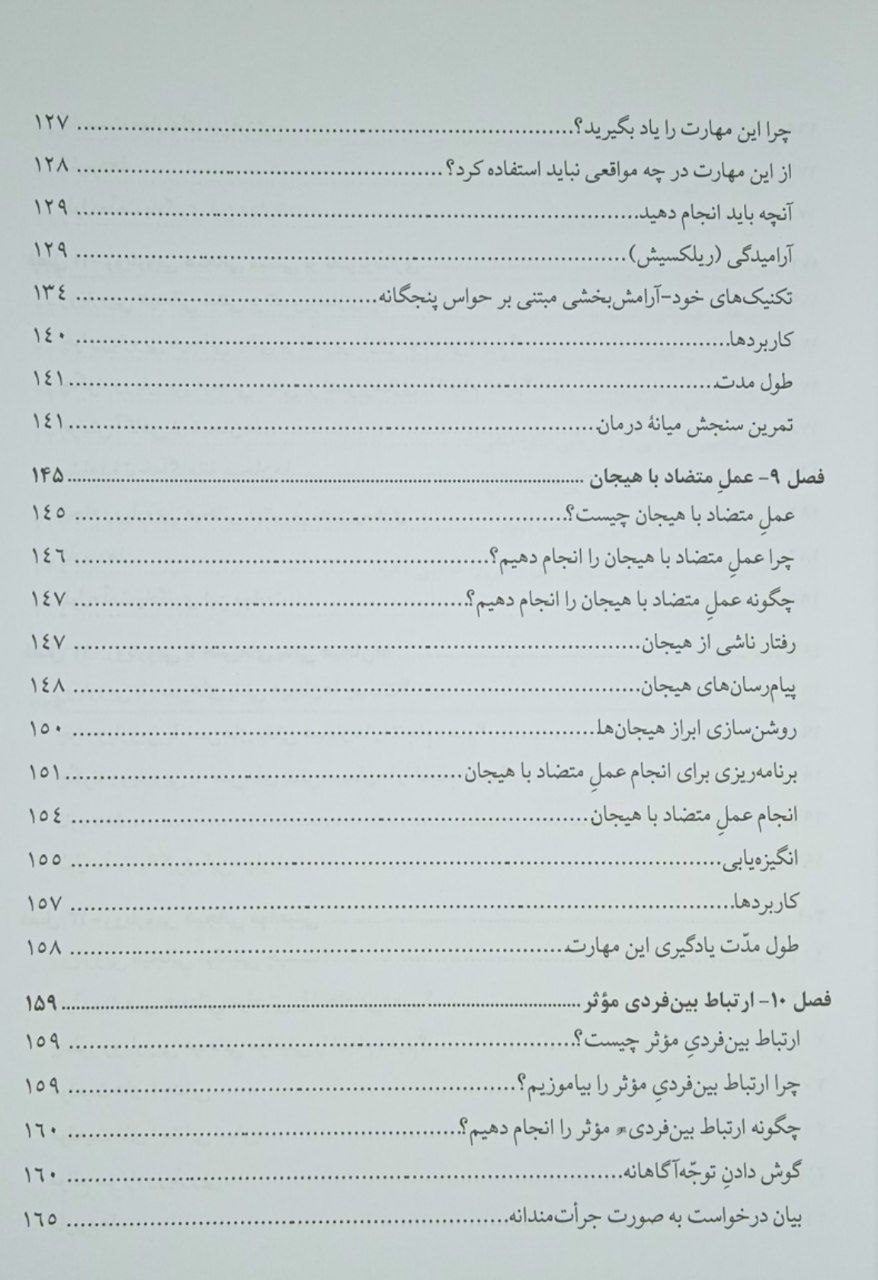 چرا این مهارت را یاد بگیرید؟ ........ ١٢٧
از این مهارت در چه مواقعی نباید استفاده کرد؟ ........ ١٢٨
آنچه باید انجام دهید ........ ١٢٩
آرامیدگی (ریلکسیش) ........ ١٢٩
تکنیک‌های خود-آرامش‌بخشی مبتنی بر حواس پنجگانه ........ ١٣٤
کاربردها ........ ١٤٠
طول مدت ........ ١٤١
تمرین سنجش میانهٔ درمان ........ ١٤١
فصل ۹- عملِ متضاد با هیجان ........ ۱۴۵
عملِ متضاد با هیجان چیست؟ ........ ١٤٥
چرا عملِ متضاد با هیجان را انجام دهیم؟ ........ ١٤٦
چگونه عملِ متضاد با هیجان را انجام دهیم؟ ........ ١٤٧
رفتار ناشی از هیجان ........ ١٤٧
پیام‌رسان‌های هیجان ........ ١٤٨
روشن‌سازی ابراز هیجان‌ها ........ ١٥٠
برنامه‌ریزی برای انجام عملِ متضاد با هیجان ........ ١٥١
انجام عملِ متضاد با هیجان ........ ١٥٤
انگیزه‌یابی ........ ١٥٥
کاربردها ........ ١٥٧
طول مدّت یادگیری این مهارت ........ ١٥٨
فصل ۱۰- ارتباط بین‌فردی مؤثر ........ ۱۵۹
ارتباط بین‌فردیِ مؤثر چیست؟ ........ ١٥٩
چرا ارتباط بین‌فردیِ مؤثر را بیاموزیم؟ ........ ١٥٩
چگونه ارتباط بین‌فردی مؤثر را انجام دهیم؟ ........ ١٦٠
گوش دادنِ توجّه‌آگاهانه ........ ١٦٠
بیان درخواست به صورت جرأت‌مندانه ........ ١٦٥